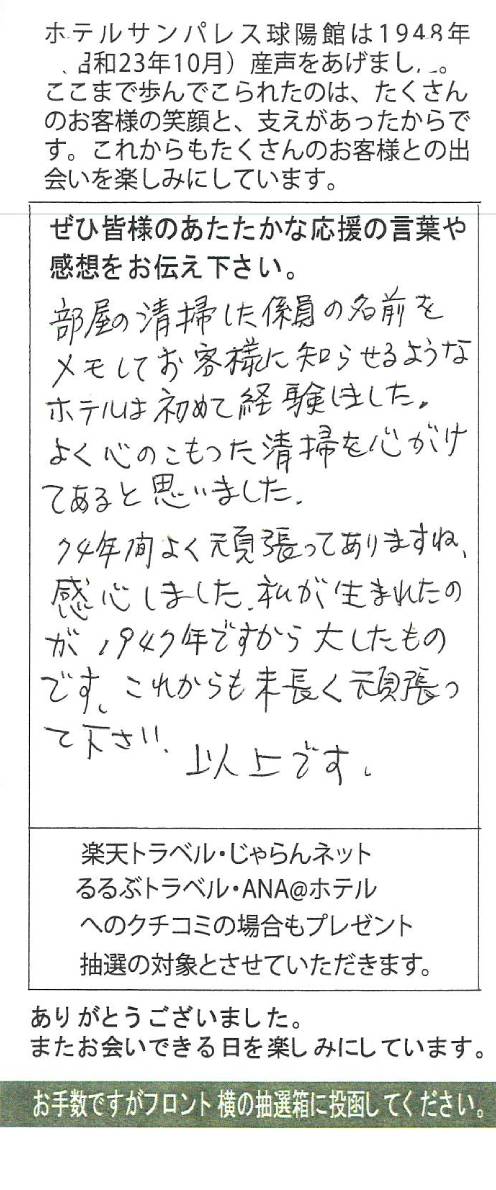 ホテルサンパレス球陽館は1948年
昭和23年10月）産声をあげまし 。
ここまで歩んでこられたのは、たくさん
のお客様の笑顔と、支えがあったからで
す。これからもたくさんのお客様との出
会いを楽しみにしています。
ぜひ皆様のあたたかな応援の言葉や
感想をお伝え下さい。
部屋の清掃した係員の名前を
メモしてお客様に知らせるような
ホテルは初めて経験しました。
よく心のこもった清掃を心がけ
てあると思いました。
74年間よく頑張ってありますね、
感心しました。私が生まれたの
が1947年ですから大したもの
です。これからも末長く頑張っ
て下さい。
以上です。
楽天トラベル・じゃらんネット
るるぶトラベル・ANA@ホテル
へのクチコミの場合もプレゼント
抽選の対象とさせていただきます。
ありがとうございました。
またお会いできる日を楽しみにしています。
お手数ですがフロント横の抽選箱に投函してください。